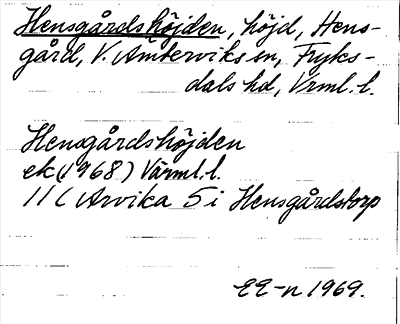 Hensgårdshöjden, höjd, Hens-
gård, V. Ämterviks sn, Fryks-
dals hd, Vrml. l.
Hensgårdshöjden
ek (1968) Värml. l.
11C Arvika 5 i Hensgårdstorp
EE-n 1969.